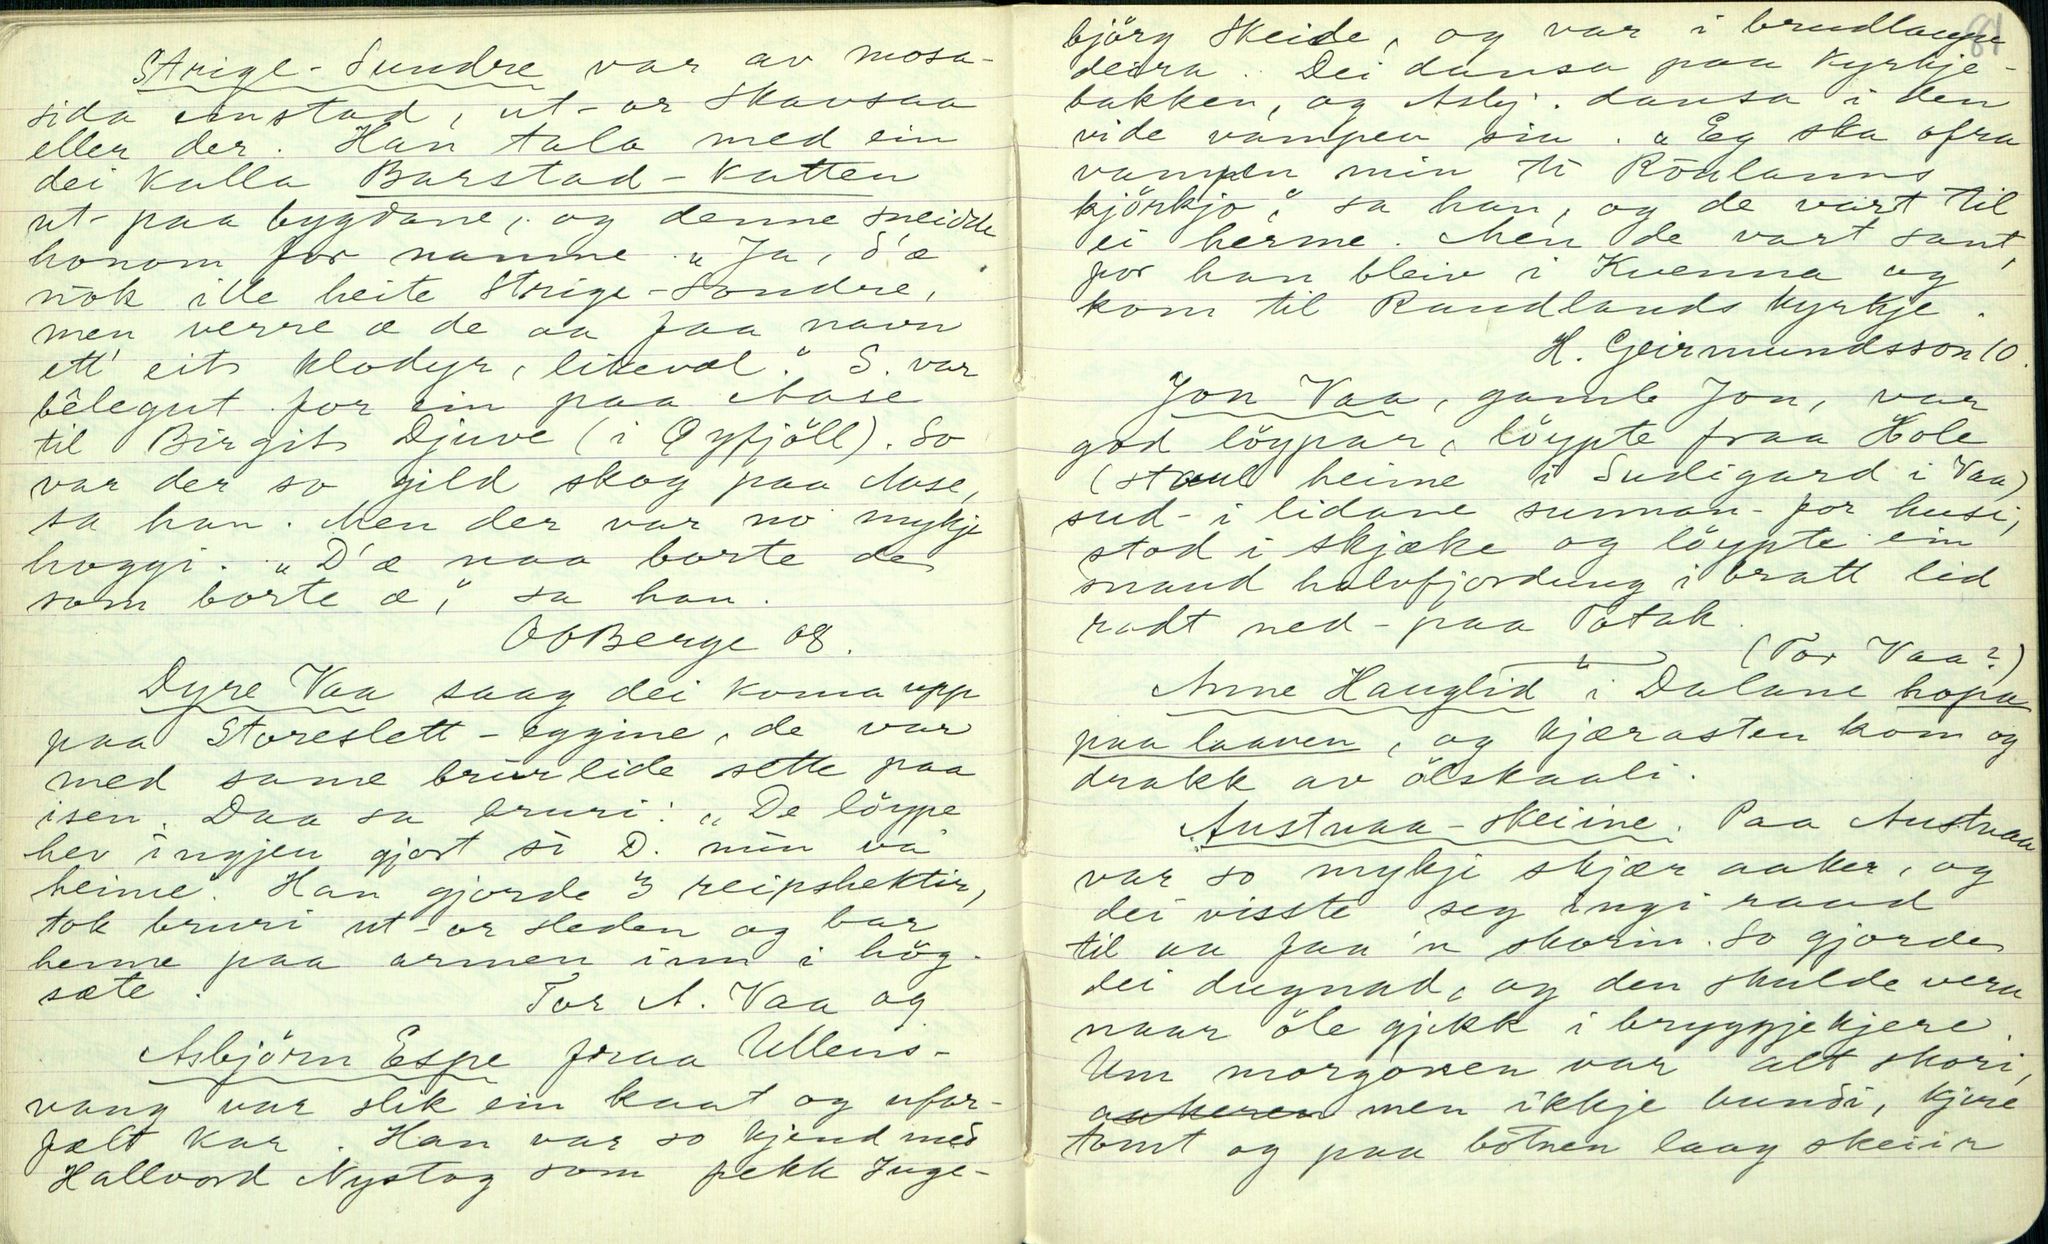 Strige-Sundre var av mosa-
sida einstad, ut-or Skavsaa
eller der. Han tala med ein
dei kalla Barstad-Katten
ut-paa bygdane, og denne sneidde
honom for namne. "Ja, d'æ
nòk ille heite Strige-Sondre,
men verre æ de aa faa navn
ett' eit klodyr, likevæl." S. var
bêlegut for ein paa Aase
til Birgit Djuve (i Øyfjöll). So
var der so gild skog paa Aase,
sa han. Men der var no mykje
hoggi. "D'æ naa borte de
som borte æ," sa han.
OOBerge 08.
Dyre Vaa saag dei koma upp
paa Storeslett-eggine, de var
med same brurlide sette paa
isen. Daa sa bruri: "De löype
hev ingjen gjort si D. min va
heime". Han gjorde 3 reipshektir,
tok bruri ut-or sleden og bar
henne paa armen inn i hög-
sæte. Tor A. Vaa og
Asbjörn Espe fraa Ullens-
vang var slik ein kaat og ufor-
fælt kar. Han var so kjend med
Hallvord Nystog som fekk Inge-
81
björg Skeide, og var i brudlaupe
deira. Dei dansa paa Kyrkje-
bakken, og Asbj. dansa i den
vide vampen sin. "Eg ska ofra
vampen min ti Röulanns
kjörkjo," sa han, og de vart til
ei herme. Men de vart sant,
for han bleiv i Kvenna og
kom til Raudlands kyrkje.
H. Geirmundsson 10.
Jon Vaa, gamle Jon, var
god löypar, löypte fraa Hole
(staul heime i Sudigard i Vaa)
sud-i lidane sunnan-for husi,
stod i skjæke og löypte ein
snaud halvfjordung i bratt lid
radt ned-paa Totak.
(Tor Vaa?)
Anne Hauglid i Dalane hopa
paa laaven, og kjærasten kom og
drakk av ölskaali.
Austvaa-skeiine. Paa Austvaa
var so mykji skjær aaker, og
dei visste seg ingi raad
til aa faa 'n skorin. So gjorde
dei dugnad, og den skulde vera
naar öle gjekk i bryggjekjere.
Um morgonen var alt skori,
aakeren men ikkje bundi, kjere
tomt og paa botnen laag skeiir